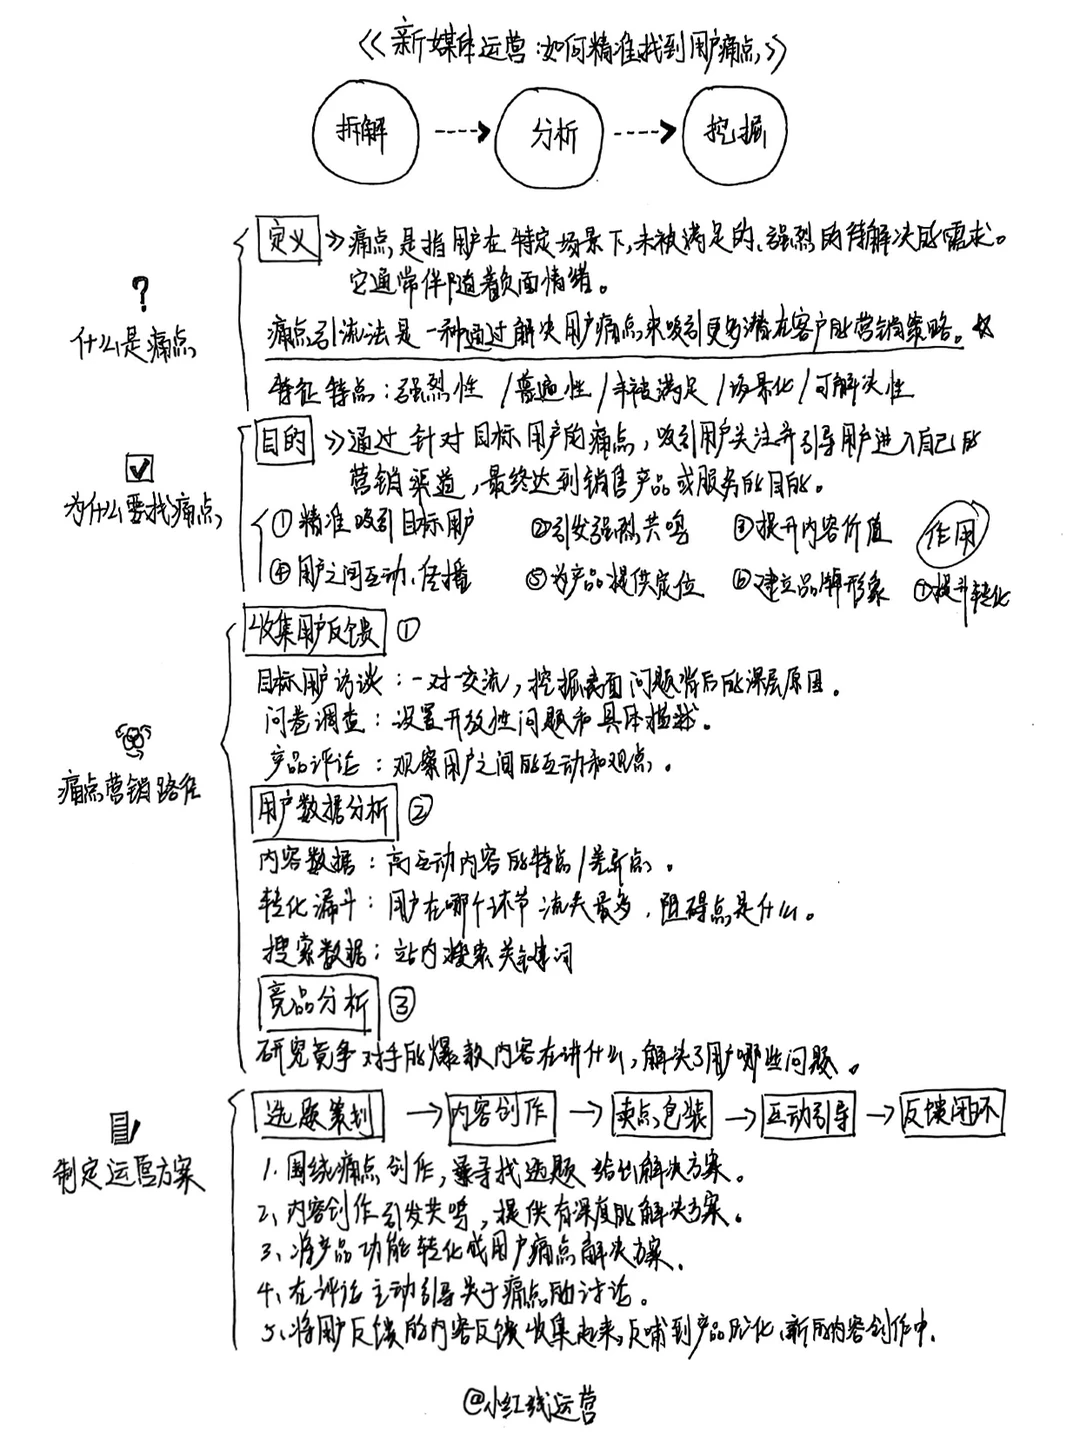 《新媒体运营:如何精准找到用户痛点》
拆解 分析 挖掘
定义 >> 痛点是指用户在特定场景下,未被满足的、强烈的待解决的需求。
它通常伴随着负面情绪。
?
什么是痛点
痛点引流法是一种通过解决用户痛点来吸引更多潜在客户的营销策略。☆
特征特点:强烈性 / 普遍性 / 未被满足 / 场景化 / 可解决性
目的 >> 通过针对目标用户的痛点,吸引用户关注并引导用户进入自己的
营销渠道,最终达到销售产品或服务的目的。
为什么要找痛点
①精准吸引目标用户 ②引发强烈共鸣 ③提升内容价值 作用
④用户之间互动、传播 ⑤为产品提供定位 ⑥建立品牌形象 ⑦提升转化
收集用户反馈 ①
目标用户访谈:一对一交流,挖掘表面问题背后的深层原因。
问卷调查:设置开放性问题和具体描述。
产品评论:观察用户之间的互动和观点。
痛点营销路径
用户数据分析 ②
内容数据:高互动内容的特点/差异点。
转化漏斗:用户在哪个环节流失最多,阻碍点是什么。
搜索数据:站内搜索关键词
竞品分析 ③
研究竞争对手的爆款内容在讲什么,解决了用户哪些问题。
选题策划 → 内容创作 → 卖点包装 → 互动引导 → 反馈闭环
制定运营方案
1.围绕痛点创作,寻找选题给出解决方案。
2、内容创作引发共鸣,提供有深度的解决方案。
3、将产品功能转化成用户痛点解决方案.
4、在评论主动引导关于痛点的讨论。
5、将用户反馈的内容反馈收集起来,反哺到产品优化、新的内容创作中.
@小红线运营